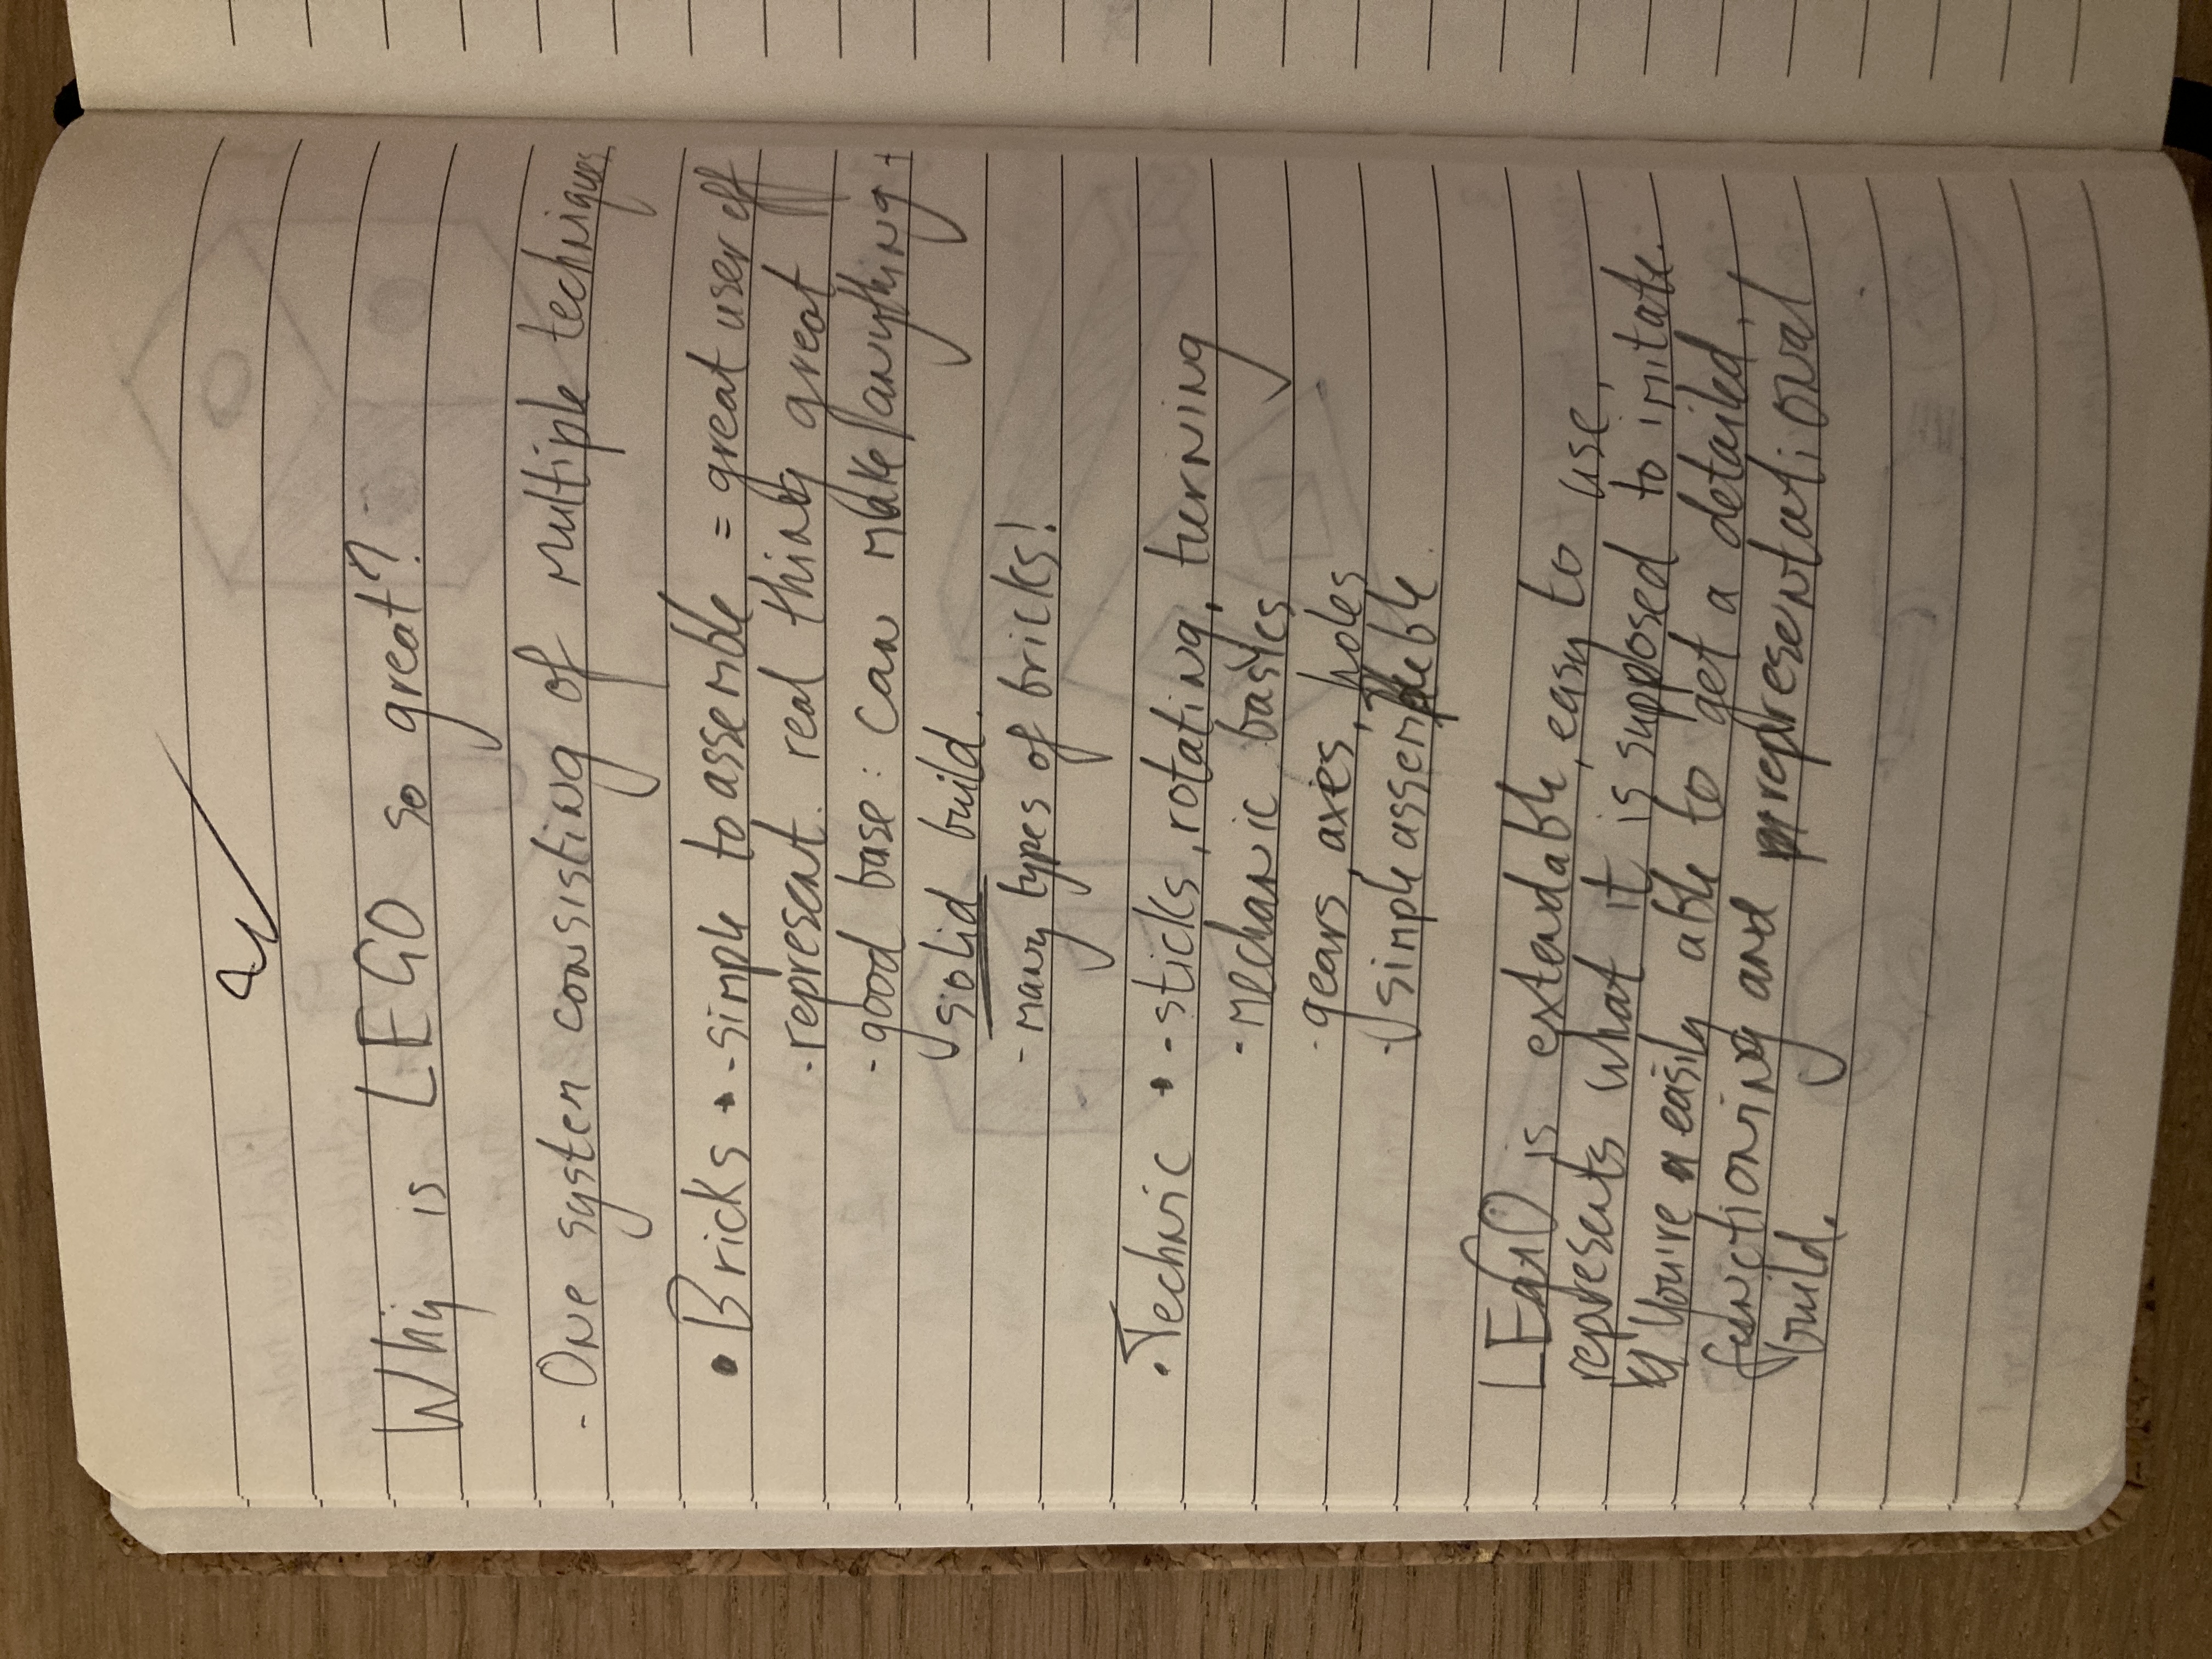 Why is LEGO so great?
- One system consisting of multiple techniques
• Bricks • - simple to assemble = great user eff
- represent. real thing great
- good base: can make anything +
solid build.
- many types of bricks!
• Technic • - sticks, rotating, turning
- mechanic basics
- gears, axes, holes
- simple assemble ble.
LEGO is extendable, easy to use,
represents what it is supposed to imitate.
You're easily able to get a detailed,
functioning and representational
build.